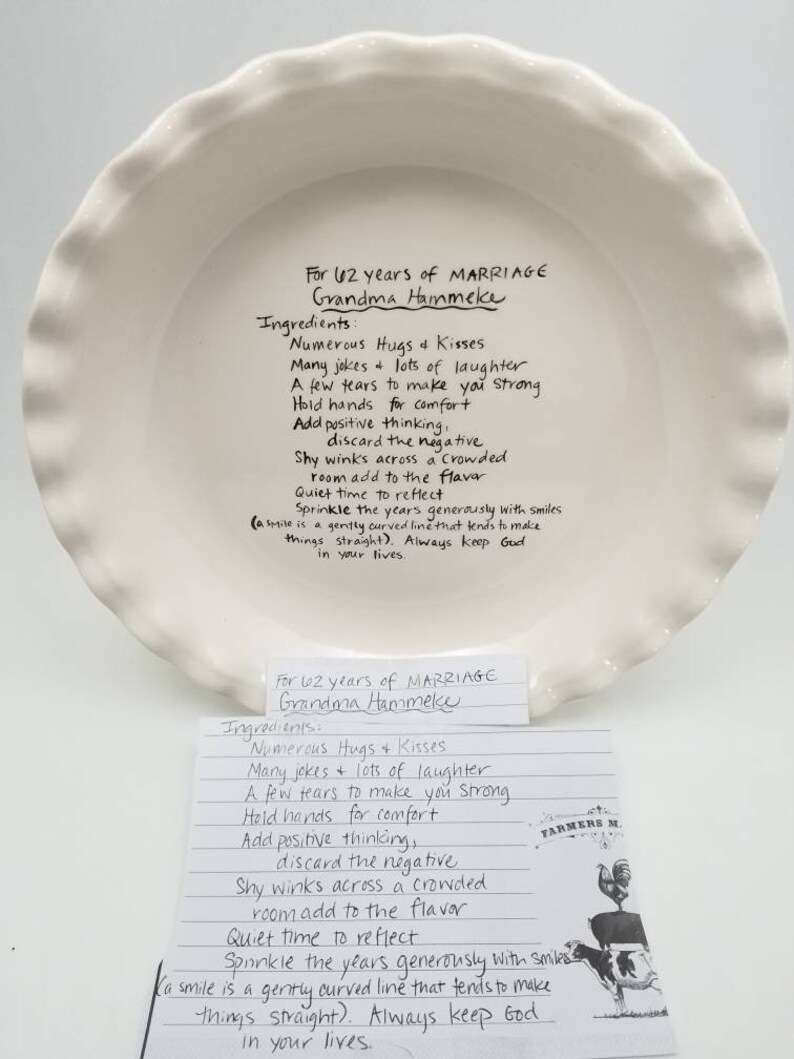 For 62 years of MARRIAGE
Grandma Hammeke
Ingredients:
Numerous Hugs & Kisses
Many jokes & lots of laughter
A few tears to make you strong
Hold hands for comfort
Add positive thinking,
discard the negative
Shy winks across a crowded
room add to the flavor
Quiet time to reflect
Sprinkle the years generously with smiles
(a smile is a gently curved line that tends to make
things straight). Always keep God
in your lives.
For 62 years of MARRIAGE
Grandma Hammeke
Ingredients:
Numerous Hugs & Kisses
Many jokes & lots of laughter
A few tears to make you strong
Hold hands for comfort
Add positive thinking,
discard the negative
Shy winks across a crowded
room add to the flavor
Quiet time to reflect
Sprinkle the years generously with smiles
(a smile is a gently curved line that tends to make
things straight). Always keep God
in your lives.
FARMERS M.